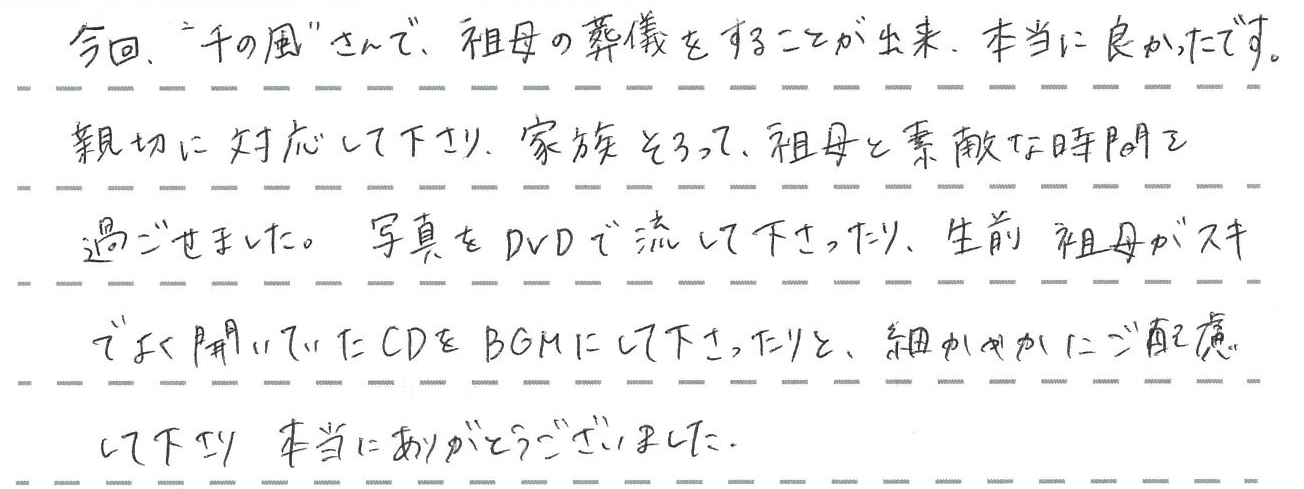 今回、“千の風”さんで、祖母の葬儀をすることが出来、本当に良かったです。
親切に対応して下さり、家族そろって、祖母と素敵な時間を
過ごせました。 写真をDVDで流して下さったり、生前 祖母がスキ
でよく開いていたCDをBGMにして下さったりと、細かやかにご配慮
して下さり 本当にありがとうございました.